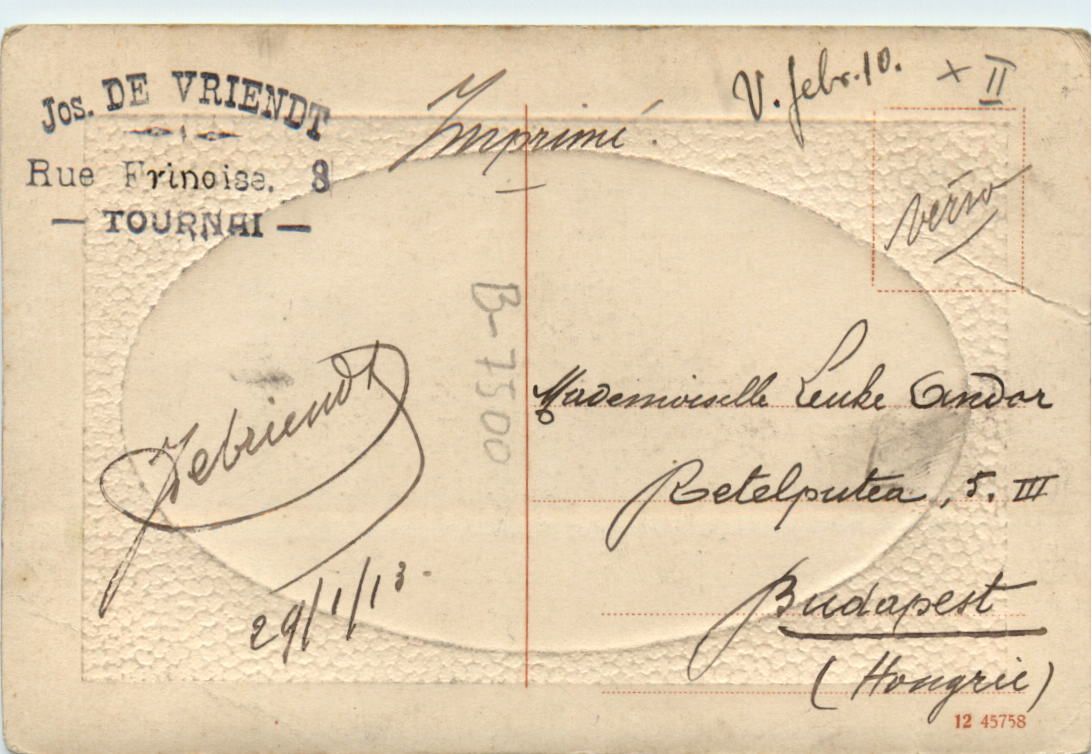 Jos. DE VRIENDT
Rue Frinoise. 8
— TOURNAI —
Imprimé.
V. febr. 10. + II
verso
B-7500
Jebriendt
29/1/13.
Mademoiselle Lenke Andor
Retelputca, 5. III
Budapest
(Hongrie)
12 45758